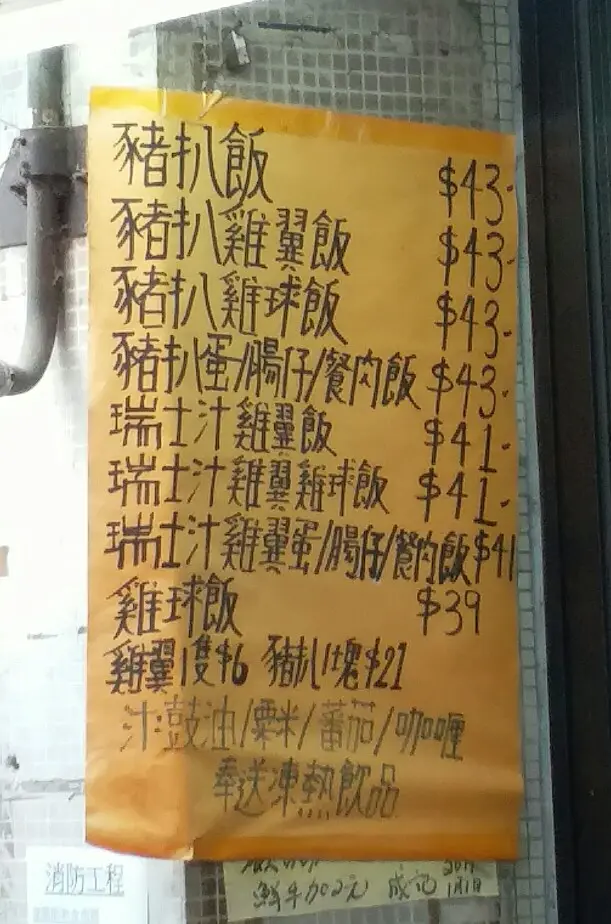 豬扒飯 $43-
豬扒雞翼飯 $43-
豬扒雞球飯 $43-
豬扒蛋/腸仔/餐肉飯 $43-
瑞士汁雞翼飯 $41-
瑞士汁雞翼雞球飯 $41-
瑞士汁雞翼蛋/腸仔/餐肉飯 $41
雞球飯 $39
雞翼1隻$6 豬扒1塊$21
汁:豉油/粟米/蕃茄/咖喱
奉送凍熱飲品
消防工程